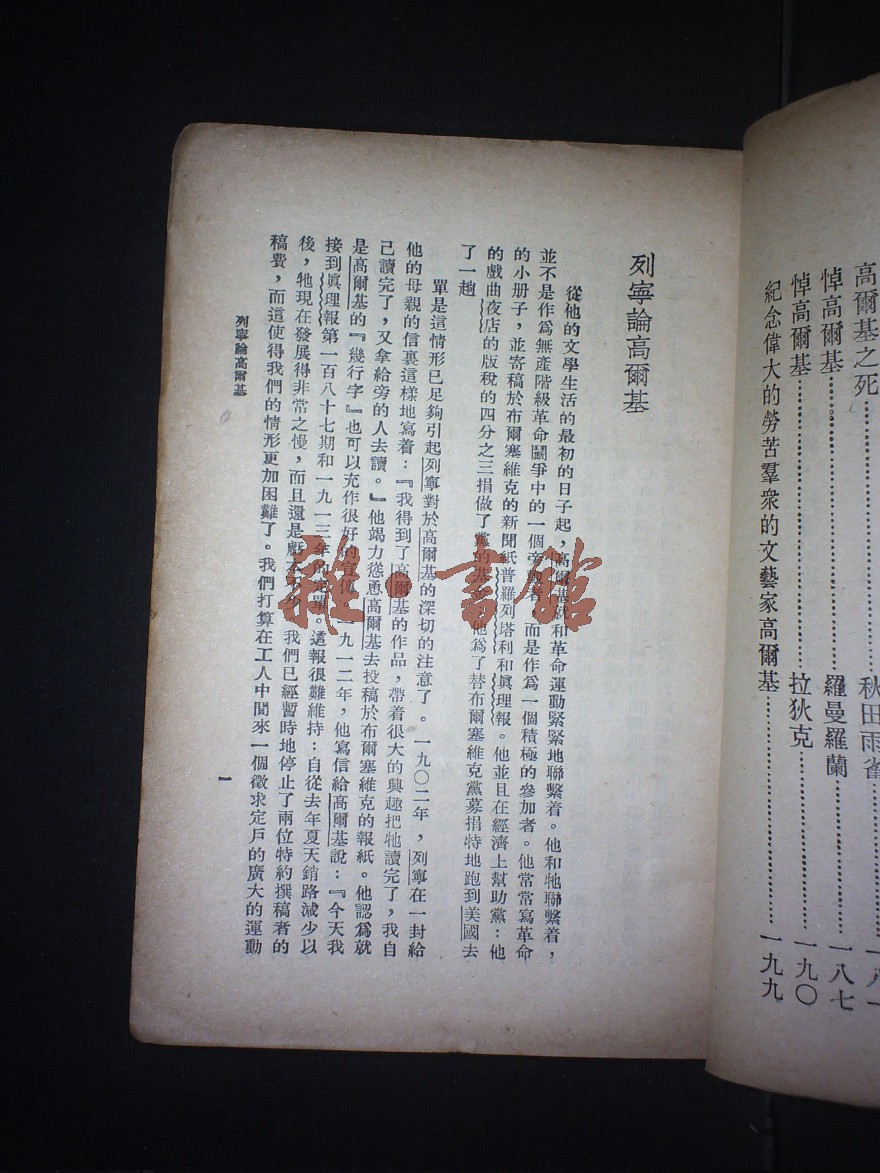 高爾基之死……秋田雨雀……一八一
悼高爾基……羅曼羅蘭……一八七
悼高爾基……拉狄克……一九〇
紀念偉大的勞苦羣衆的文藝家高爾基……一九九
列寧論高爾基
從他的文學生活的最初的日子起,高爾基就和革命運動緊緊地聯繫着。他和牠聯繫着,
並不是作爲無產階級革命鬭爭中的一個旁觀者,而是作爲一個積極的參加者。他常常寫革命
的小册子,並寄稿於布爾塞維克的新聞紙普羅列塔利和眞理報。他並且在經濟上幫助黨:他
的戲曲夜店的版稅的四分之三捐做了黨的基金,他爲了替布爾塞維克黨募捐特地跑到美國去
了一趟
單是這情形已足夠引起列寧對於高爾基的深切的注意了。一九〇二年,列寧在一封給
他的母親的信裏這樣地寫着:『我得到了高爾基的作品,帶着很大的興趣把牠讀完了,我自
己讀完了,又拿給旁的人去讀。』他竭力慫恿高爾基去投稿於布爾塞維克的報紙。他認爲就
是高爾基的『幾行字』也可以充作很好的宣傳。一九一二年,他寫信給高爾基說:『今天我
接到眞理報第一百八十七期和一九一三年的定單。這報很難維持:自從去年夏天銷路減少以
後,牠現在發展得非常之慢,而且還是虧本 我們已經暫時地停止了兩位特約撰稿者的
稿費,而這使得我們的情形更加困難了。我們打算在工人中間來一個徵求定戶的廣大的運動
列寧論高爾基
一
雜·書館